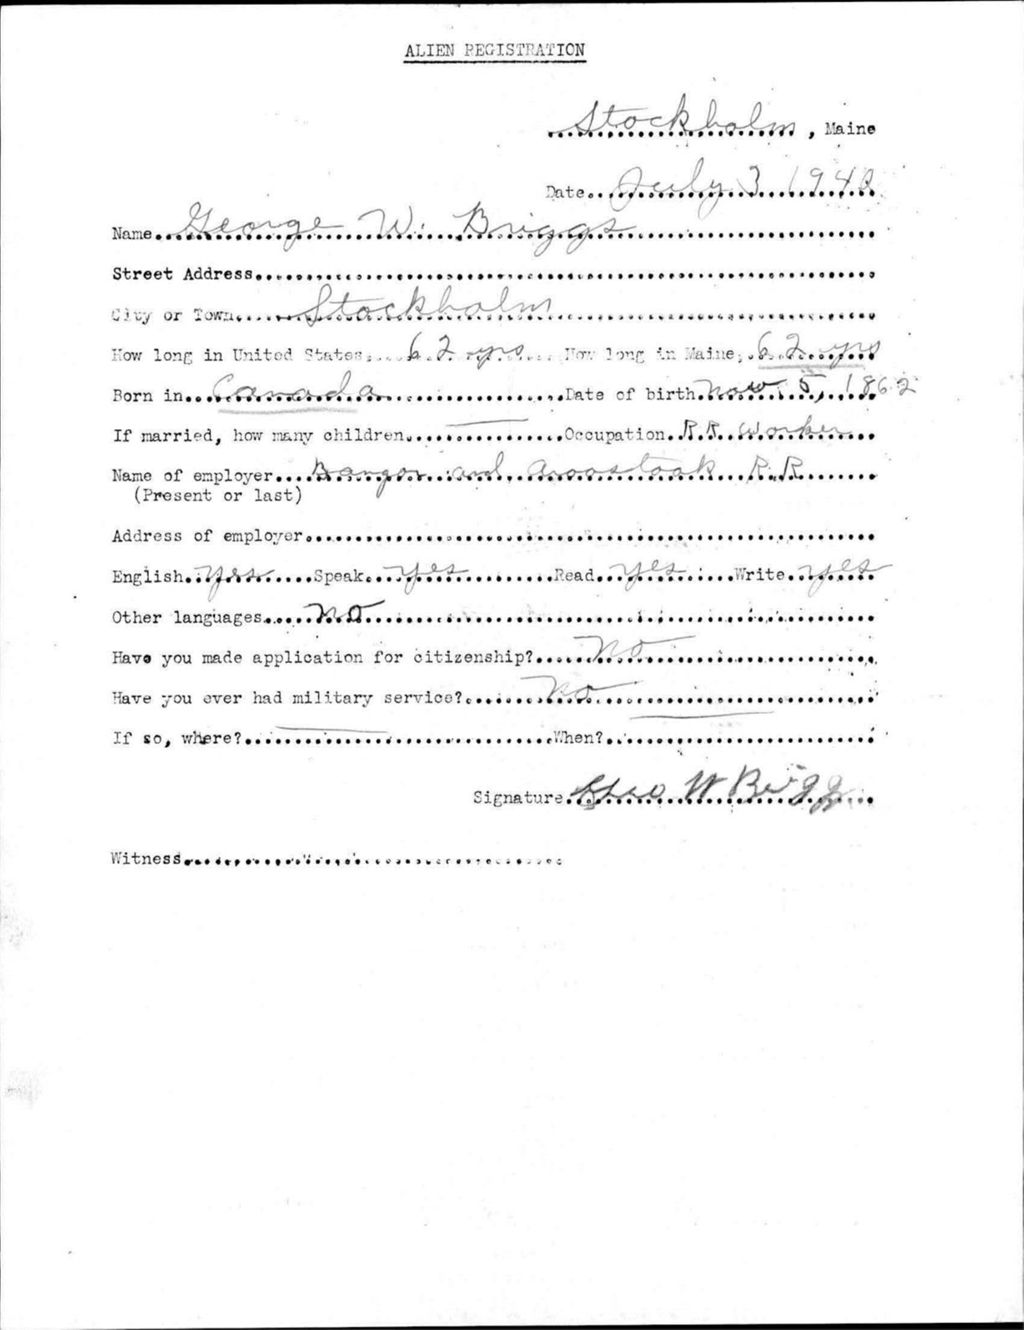 ALIEN REGISTRATION
Stockholm, Maine
Date July 3 1940
Name George W. Briggs
Street Address
City or Town Stockholm
How long in United States 62 yrs How long in Maine 62 yrs
Born in Canada Date of birth Nov 5, 1862
If married, how many children Occupation R.R. Worker
Name of employer Bangor and Aroostook R.R
(Present or last)
Address of employer
English yes Speak yes Read yes Write yes
Other languages no
Have you made application for citizenship? No
Have you ever had military service? no
If so, where? When?
Signature Geo W Briggs
Witness